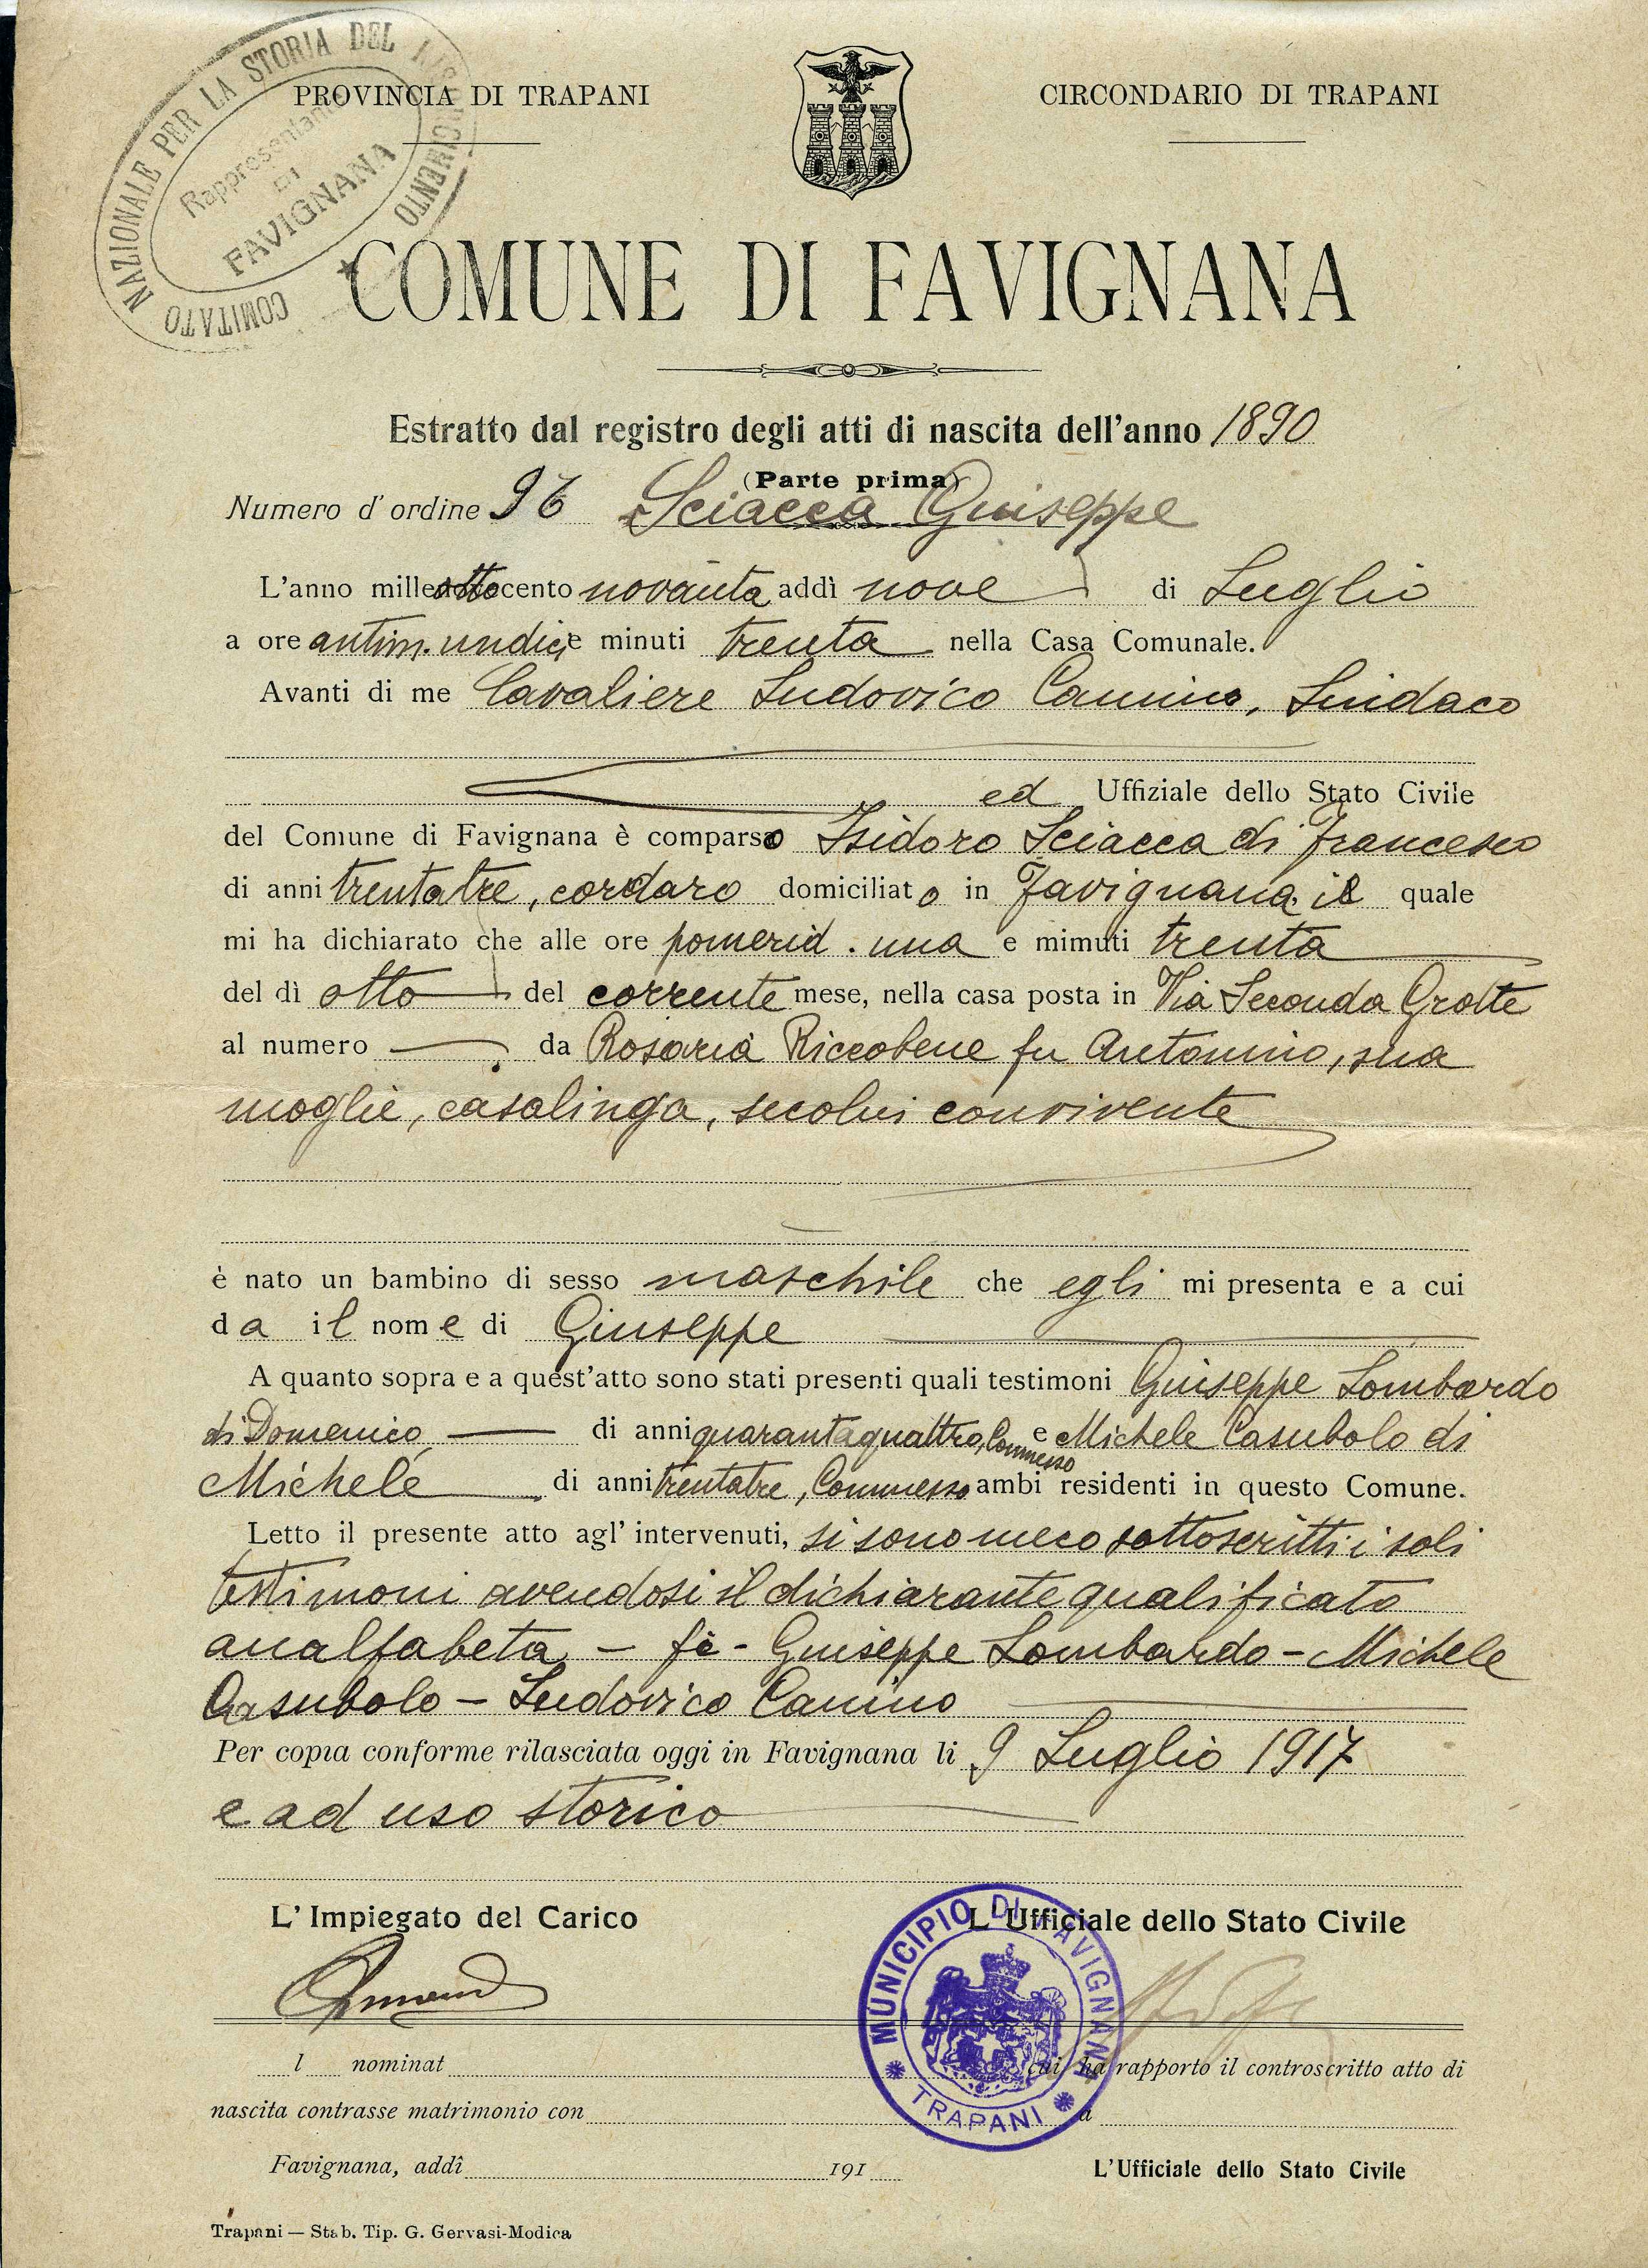 COMITATO NAZIONALE PER LA STORIA DEL RISORGIMENTO
Rappresentante
DI
FAVIGNANA
PROVINCIA DI TRAPANI
CIRCONDARIO DI TRAPANI
COMUNE DI FAVIGNANA
Estratto dal registro degli atti di nascita dell'anno 1890
(Parte prima)
Numero d'ordine 96 Sciacca Giuseppe
L'anno milleottocento novanta addì nove di Luglio
a ore antim. undici e minuti trenta nella Casa Comunale.
Avanti di me Cavaliere Ludovico Canino, Sindaco
ed Uffiziale dello Stato Civile
del Comune di Favignana è comparso Isidoro Sciacca di Francesco
di anni trentatre, cordaro domiciliato in Favignana il quale
mi ha dichiarato che alle ore pomerid. una e mimuti trenta
del dì otto del corrente mese, nella casa posta in Via Seconda Grotte
al numero — da Rosaria Riccobene fu Antonino, sua
moglie, casalinga, secolui convivente
è nato un bambino di sesso maschile che egli mi presenta e a cui
da il nome di Giuseppe
A quanto sopra e a quest'atto sono stati presenti quali testimoni Giuseppe Lombardo
di Domenico — di anni quarantaquattro, Commesso e Michele Casubolo di
Michele — di anni trentatre, Commesso ambi residenti in questo Comune.
Letto il presente atto agl'intervenuti, si sono meco sottoscritti i soli
testimoni avendosi il dichiarante qualificato
analfabeta - fi - Giuseppe Lombardo - Michele
Casubolo - Ludovico Canino
Per copia conforme rilasciata oggi in Favignana li 9 Luglio 1917
e ad uso storico
L'Impiegato del Carico
L'Ufficiale dello Stato Civile
MUNICIPIO DI FAVIGNANA
TRAPANI
l nominat cui ha rapporto il controscritto atto di
nascita contrasse matrimonio con a
Favignana, addì 191
L'Ufficiale dello Stato Civile
Trapani — Stab. Tip. G. Gervasi-Modica